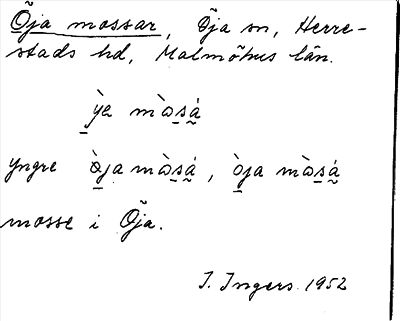 Öja mossar, Öja sn, Herre-
stads hd, Malmöhus län.
ỳe mɷ̀sá
yngre ö̀ja mɷ̀sá, ò̱ja mɷ̀sá
mosse i Öja.
I. Ingers 1952